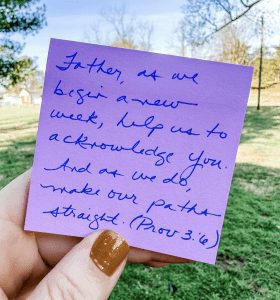 Father, as we
begin a new
week, help us to
acknowledge You.
And as we do,
make our paths
straight. (Prov 3:6)